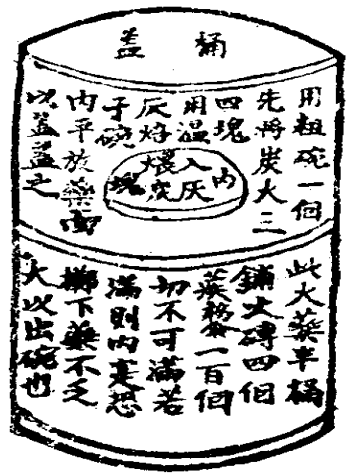 桶蓋
用粗碗一個
先將炭火二
四塊
用溫
灰焙
子碗
內平放藥面
以蓋蓋之
內
入灰
煨炭
塊
此火藥半桶
鋪火磚四個
藥一百個
切不可滿若
滿則內恐
擲下藥不乏
火以出碗也